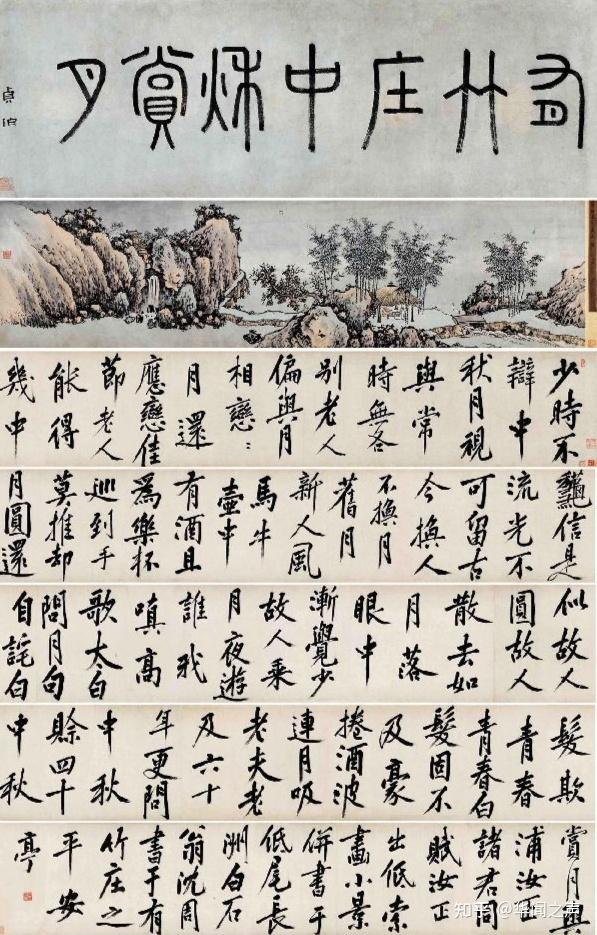 有竹庄中秌賞月
貞伯
少時不
辯中
秋月視
與常
時無各
別老人
偏與月
相戀〻
月還
應戀佳
節老人
能得
幾中
龝信是
流光不
可留古
今換人
不換月
舊月
新人風
馬牛
壺中
有酒且
爲樂杯
巡到手
莫推却
月圓還
似故人
圓故人
散去如
月落
眼中
漸覺少
故人乘
月夜遊
誰我
嗔高
歌太白
問月句
自詫白
髮欺
青春
青春白
髮固不
及豪
捲酒波
連月吸
老夫老
及六十
年更問
中秋
賒四十
中秋
賞月與
浦汝正
諸君同
賦汝正
出低索
畫小景
併書于
低尾長
洲白石
翁沈周
書于有
竹庄之
平安
亭
知乎 @华闻之声